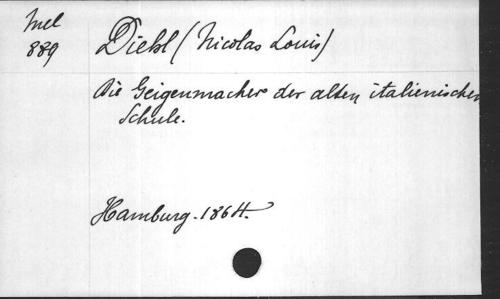 Mel
889
Diehl (Nicolas Louis)
Die Geigenmacher der alten italienischen
Schule.
Hamburg. 1864.